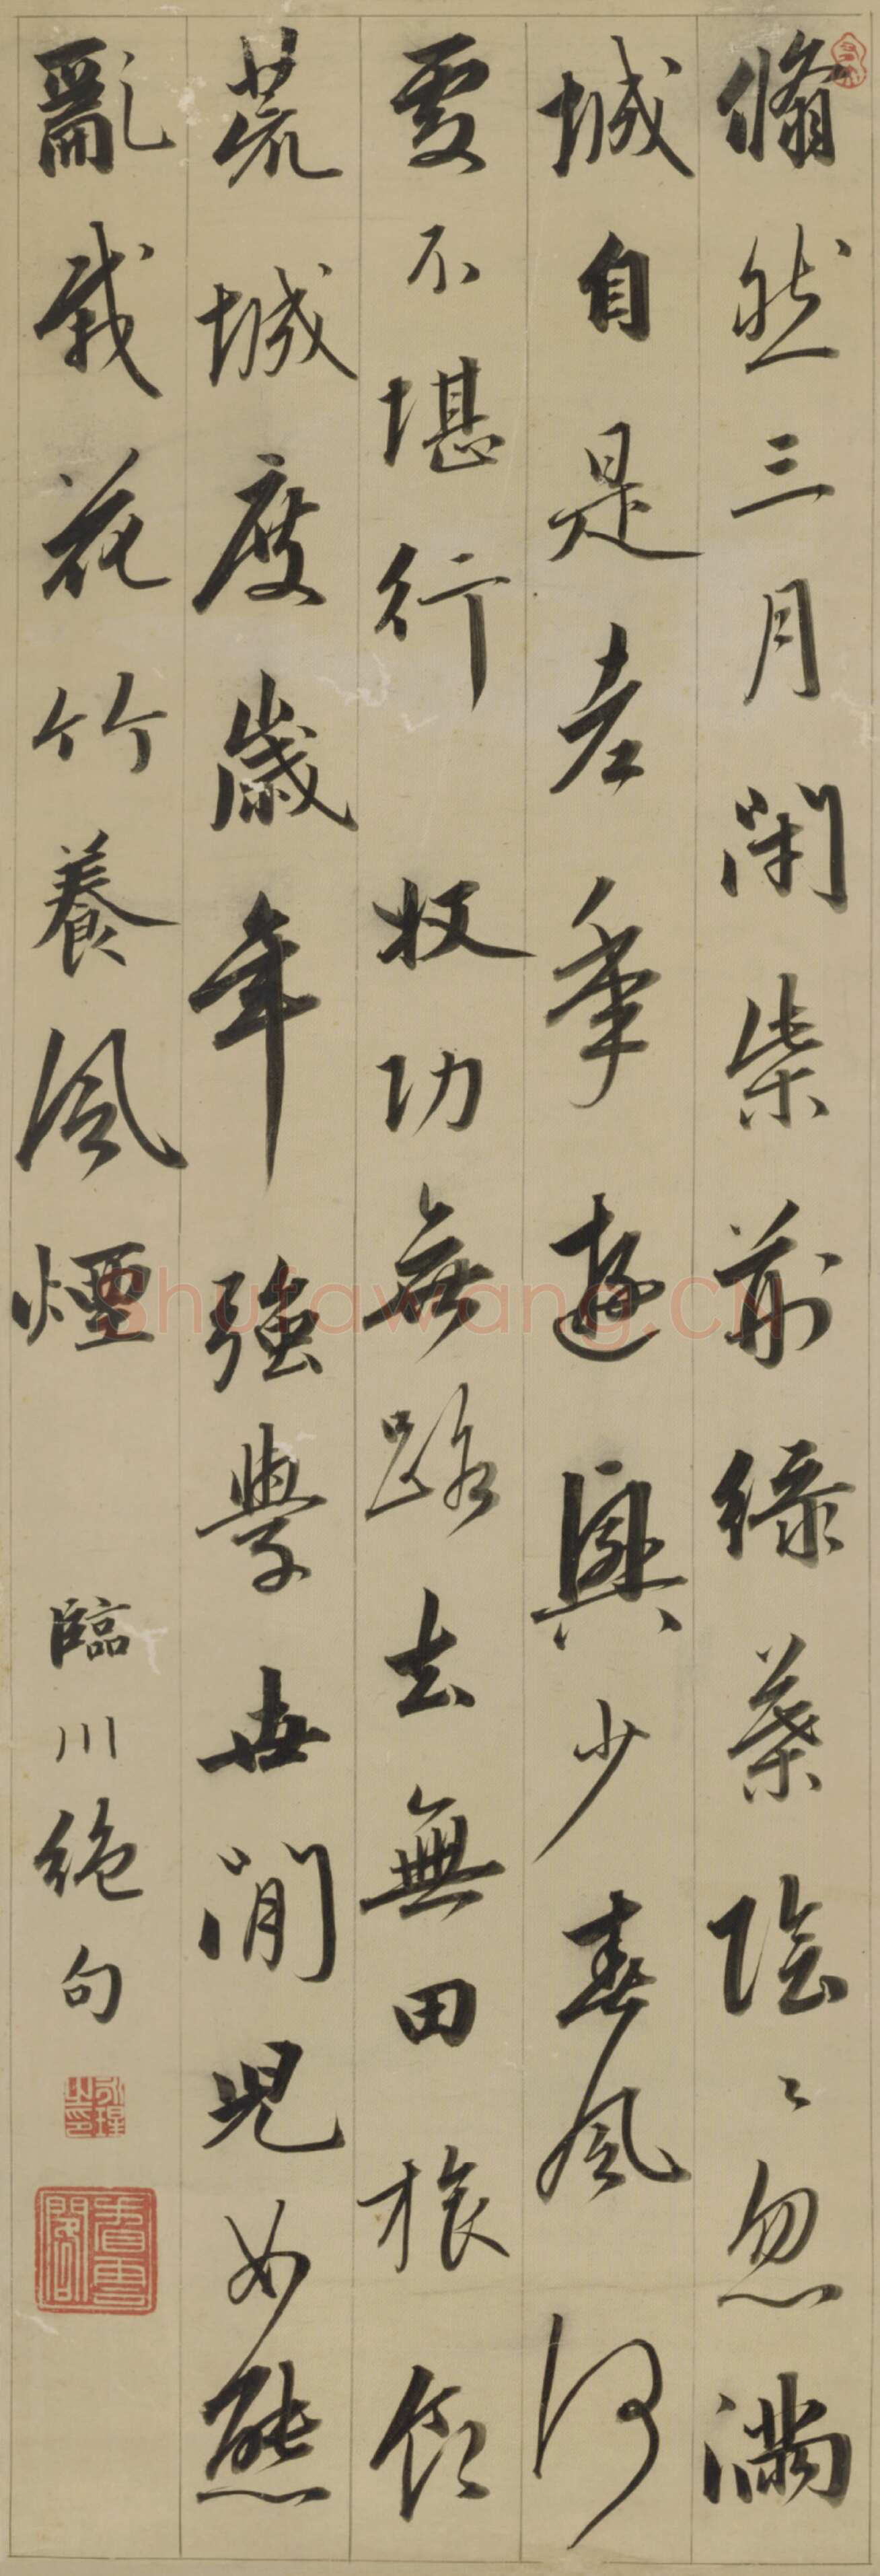 翛然三月閉柴荊綠葉陰〻忽滿
城自是老年遊興少春風何
處不堪行收功無路去無田旅食
荒城度歲年強學世間兒女態
亂栽花竹養風煙臨川絕句
永瑆之印
Shufawang.CN